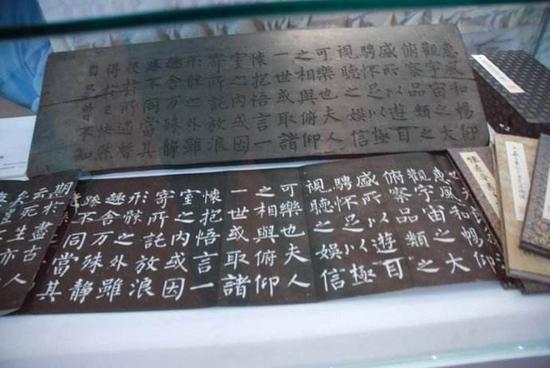 惠風和暢仰
觀宇宙之大
俯察品類之
盛所以遊目
騁懷足以極
視聽之娛信
可樂也夫人
之相與俯仰
一世或取諸
懷抱悟言一
室之內或因
寄所託放浪
形骸之外雖
趣舍萬殊靜
躁不同當其
欣於所遇暫
得於己快然
自足曾不知
風和暢仰
觀宇宙之大
俯察品類之
盛所以遊目
騁懷足以極
視聽之娛信
可樂也夫人
之相與俯仰
一世或取諸
懷抱悟言一
室之內或因
寄所託放浪
形骸之外雖
趣舍萬殊靜
躁不同當其
期於盡古人
云死生亦